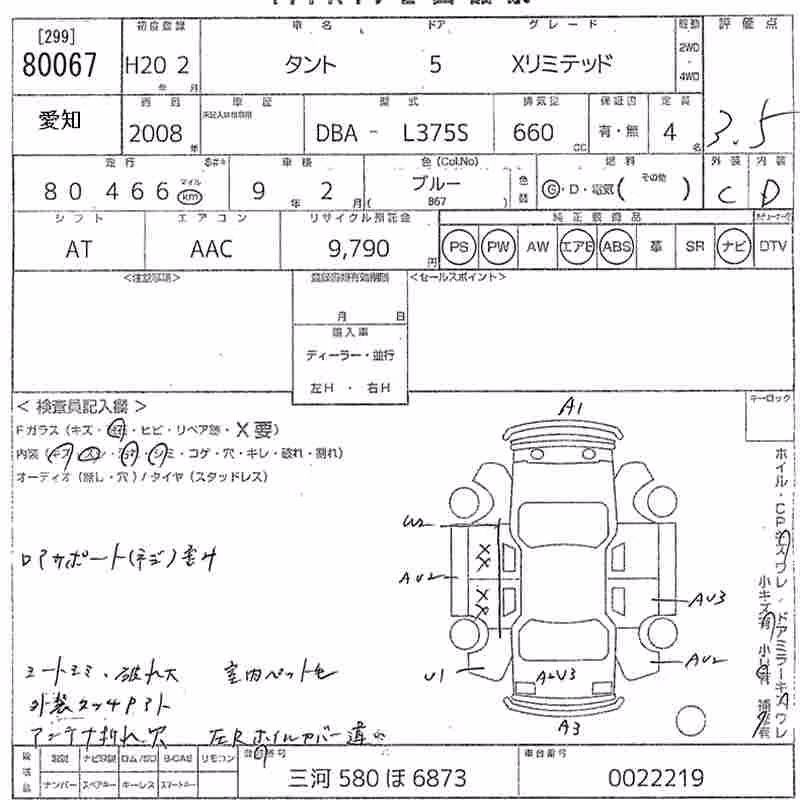 [299]
80067
初度登録
H20 2
年 月
車名 ドア グレード
タント 5 Xリミテッド
駆動
2WD
・
4WD
評価点
3.5
愛知
2008
年
車歴
型式
DBA - L375S
排気量
660
cc
保証書
有・無
定員
4
名
走行
80466
マイル
km
車検
9 年 2 月
色(Col.No)
ブルー
B67
色替
燃料
G・D・電気( その他 )
外装 内装
C D
シフト
AT
エアコン
AAC
リサイクル預託金
9,790
円
純正装備品
PS PW AW エアB ABS 革 SR ナビ DTV
<注記事項>
月 日
輸入車
ディーラー・並行
左H ・ 右H
<セールスポイント>
キーロック
<検査員記入欄>
Fガラス(キズ・ ・ヒビ・リペア跡・X要)
内装(キズ・ ・ ・シミ・コゲ・穴・キレ・破れ・割れ)
オーディオ(無し・穴)/タイヤ(スタッドレス)
A1
U2
XX
AU2
XX
AU3
U1
A2U3
AU2
A3
シートシミ・破れ大 室内ペット毛
外装タッチアト
アンテナ折れ穴 左Rホイルカバー違い
ナビ取説 リモコン
ナンバー スペアキー キーレス スマートキー
登録番号
三河 580 ほ 6873
車台番号
0022219